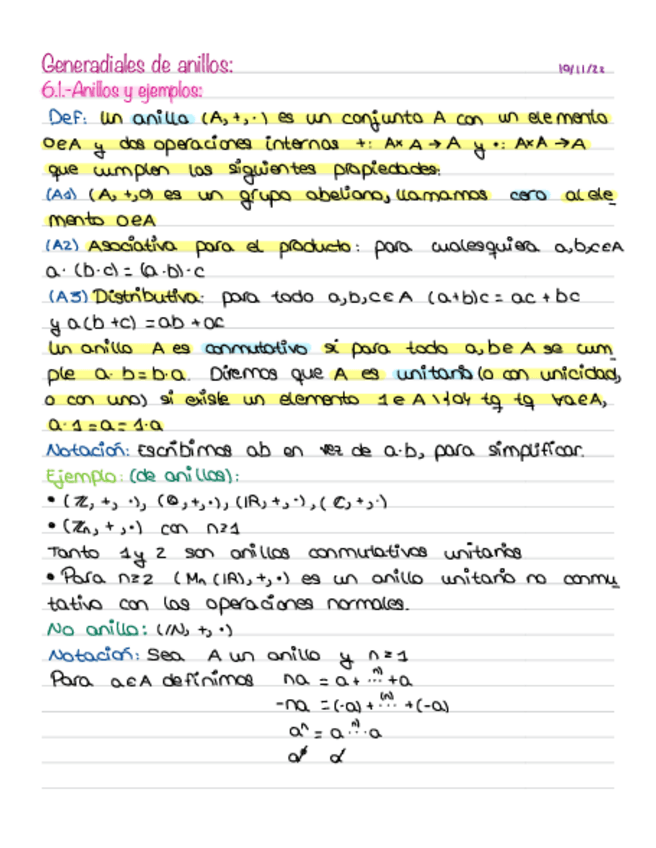 Generadiales de anillos: 10/11/22
6.1.-Anillos y ejemplos:
Def: Un anillo (A,+,·) es un conjunto A con un elemento
0∈A y dos operaciones internas +: A×A→A y ·: A×A→A
que cumplen las siguientes propiedades:
(A1) (A,+,0) es un grupo abeliano, llamamos cero al ele_
mento 0∈A
(A2) Asociativa para el producto: para cualesquiera a,b,c∈A
a·(b·c)=(a·b)·c
(A3) Distributiva: para todo a,b,c∈A (a+b)c = ac + bc
y a(b+c) = ab + ac
Un anillo A es conmutativo si para todo a,b∈A se cum_
ple a·b=b·a. Diremos que A es unitario (o con unicidad,
o con uno) si existe un elemento 1∈A\{0} tq tq ∀a∈A,
a·1=a=1·a
Notación: Escribimos ab en vez de a·b, para simplificar.
Ejemplo: (de anillos):
• (ℤ,+,·), (ℚ,+,·), (ℝ,+,·), (ℂ,+,·)
• (ℤn,+,·) con n≥1
Tanto 1 y 2 son anillos conmutativos unitarios
• Para n≥2 (Mn(ℝ),+,·) es un anillo unitario no conmu_
tativo con las operaciones normales.
No anillo: (ℕ,+,·)
Notación: Sea A un anillo y n≥1
Para a∈A definimos na = a + ⁿ⁾... + a
-na = (-a) + ⁽ⁿ⁾... + (-a)
aⁿ = a ⁿ⁾... a